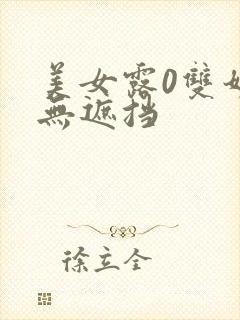 美女露0雙奶
無遮挡
徐立全